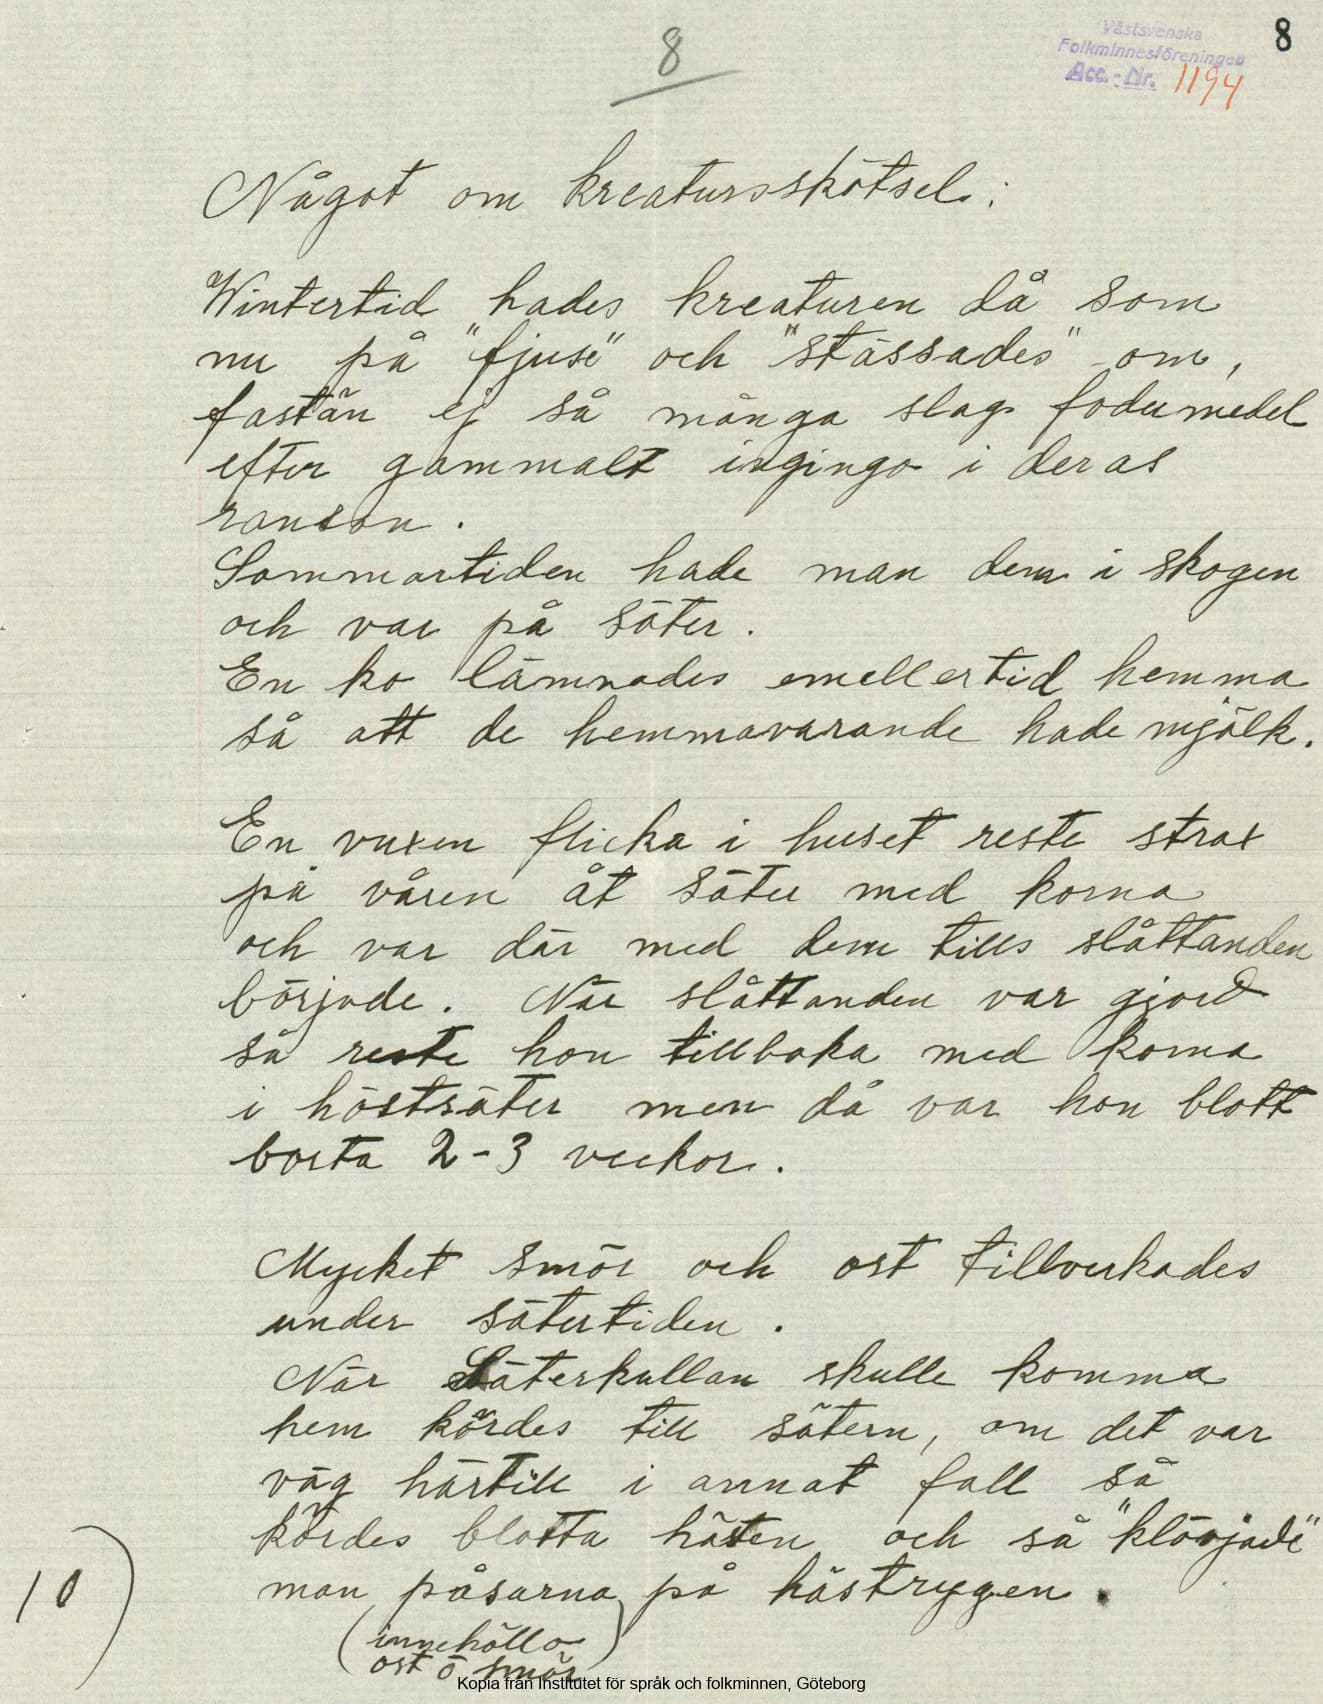 8
8
Västsvenska
Folkminnesföreningen
Acc.-Nr. 1194
Något om kreatursskötsel:
Wintertid hades kreaturen då som
nu på "fjuse" och "stässades" om,
fastän ej så många slag fodermedel
efter gammalt ingingo i deras
ranson.
Sommartiden hade man dem i skogen
och var på säter.
En ko lämnades emellertid hemma
så att de hemmavarande hade mjölk.
En vuxen flicka i huset reste strax
på våren åt säter med korna
och var där med dem tills slåttanden
började. När slåttanden var gjord
så reste hon tillbaka med korna
i höstsäter men då var hon blott
borta 2-3 veckor.
Mycket smör och ost tillverkades
under sätertiden.
När Säterkullan skulle komma
hem kördes till sätern, om det var
väg härtill i annat fall så
kördes blotta hästen och så "klövjade"
man påsarna på hästrygen.
(innehöllo
ost o smör)
10)
Kopia från Institutet för språk och folkminnen, Göteborg